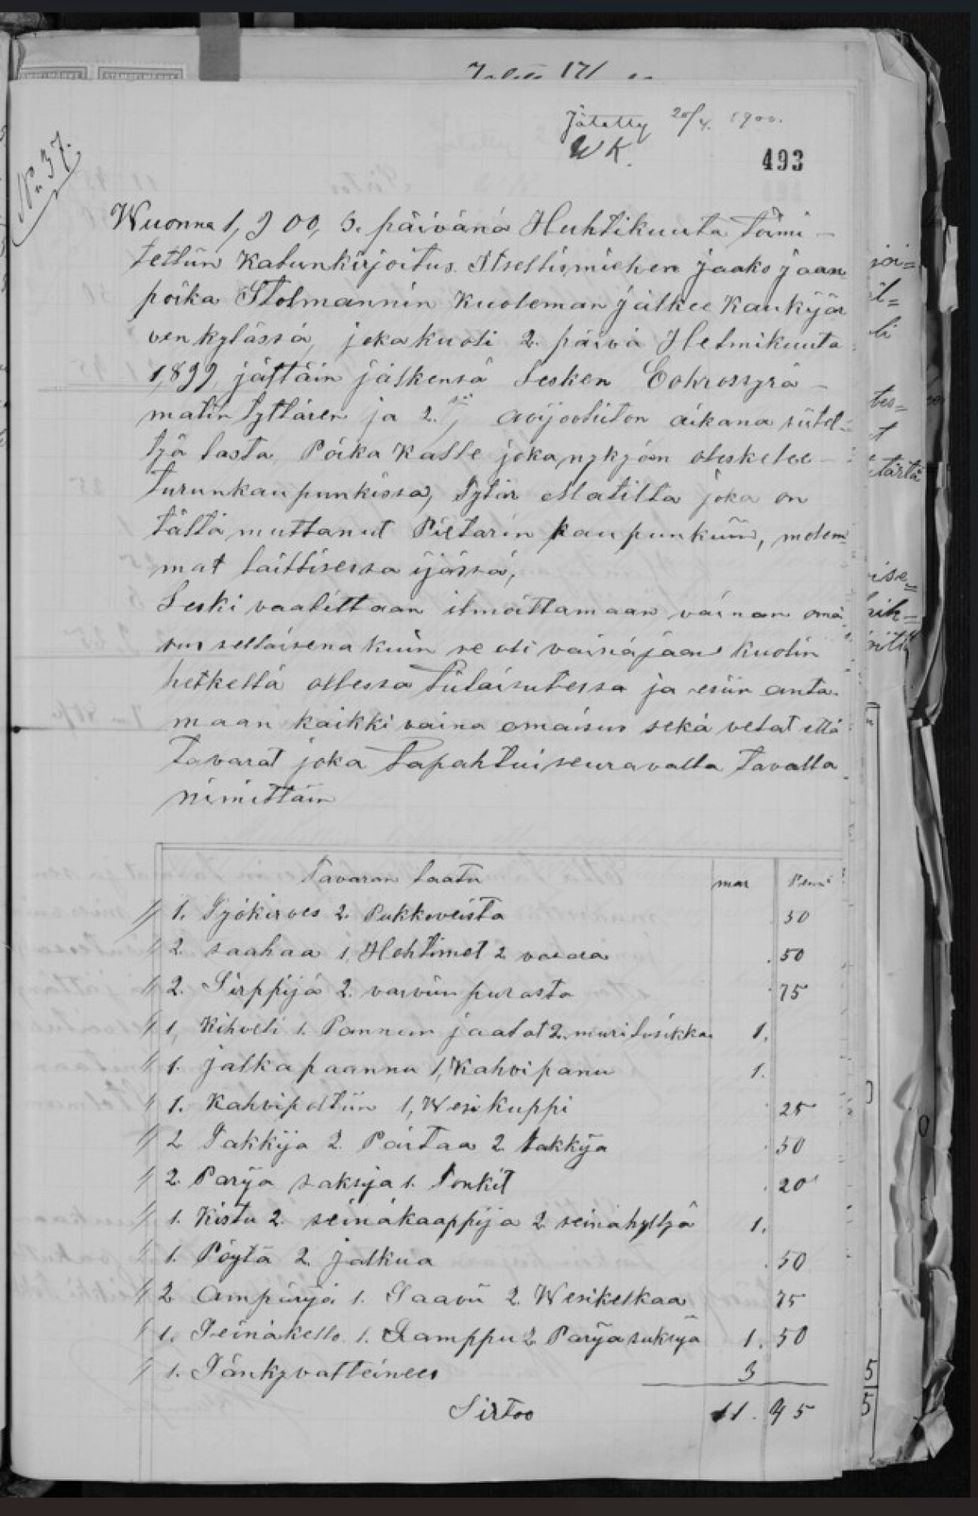 Jätetty 20/4. 1900.
WK.
493
No 37.
Wuonna 1,900, 3. päivänä Huhtikuuta toimi-
tettiin Kalunkirjoitus Itsellismiehen Jaako Jaan
poika Stolmannin Kuoleman jälkee Kaukjär
ven kylässä, joka kuoli 2. päivä Helmikuuta
1,899, jättäin jälkensä Lesken
matin tyttären ja 2. avijooliiton aikana siitet-
tyä lasta, Poika Kalle joka nykyjän oleskelee
turunkaupunkissa, Tytär Matilta joka on
tältä muttanut Pietarin kaupunkiin, molem
mat laillisessa ijässä,
Leski vaalittaan ilmoittamaan vainan omai
sus sellaisena kuin se oli vainajaan kuolin
hetkellä ollessa tilaisutessa ja esiin anta-
maan kaikki vaina omaisus sekä velat että
tavarat joka tapahtui seuravalla tavalla
nimittäin
Tavaran laatu mar Penni
1. Työkirves 2. Pukkoveista 50
2 saahaa 1, Hohtimet 2 vasaraa 50
2. Sirppijä 2. varviin purasta 75
1, Kihveli 1. Pannun jaalat 2. muurilusikka 1.
1. jalkapaannu 1, Kahvipanu 1.
1. Kahvipottiin 1, Wesikuppi 25
2 Takkija 2. Paitaa 2 Lakkija 50
2 Parija saksija 1. Tonkit 20
1. Kistu 2. seinäkaappija 2 seinähyllyä 1.
1. Pöytä 2. jalkua 50
2 Ampärijä 1. Saavii 2. Wesikelkaa 75
1. Seinäkello. 1. Lamppu 2 Parija suksija 1. 50
1. Sänkyvatteineen 3
Sirtoo 11. 95